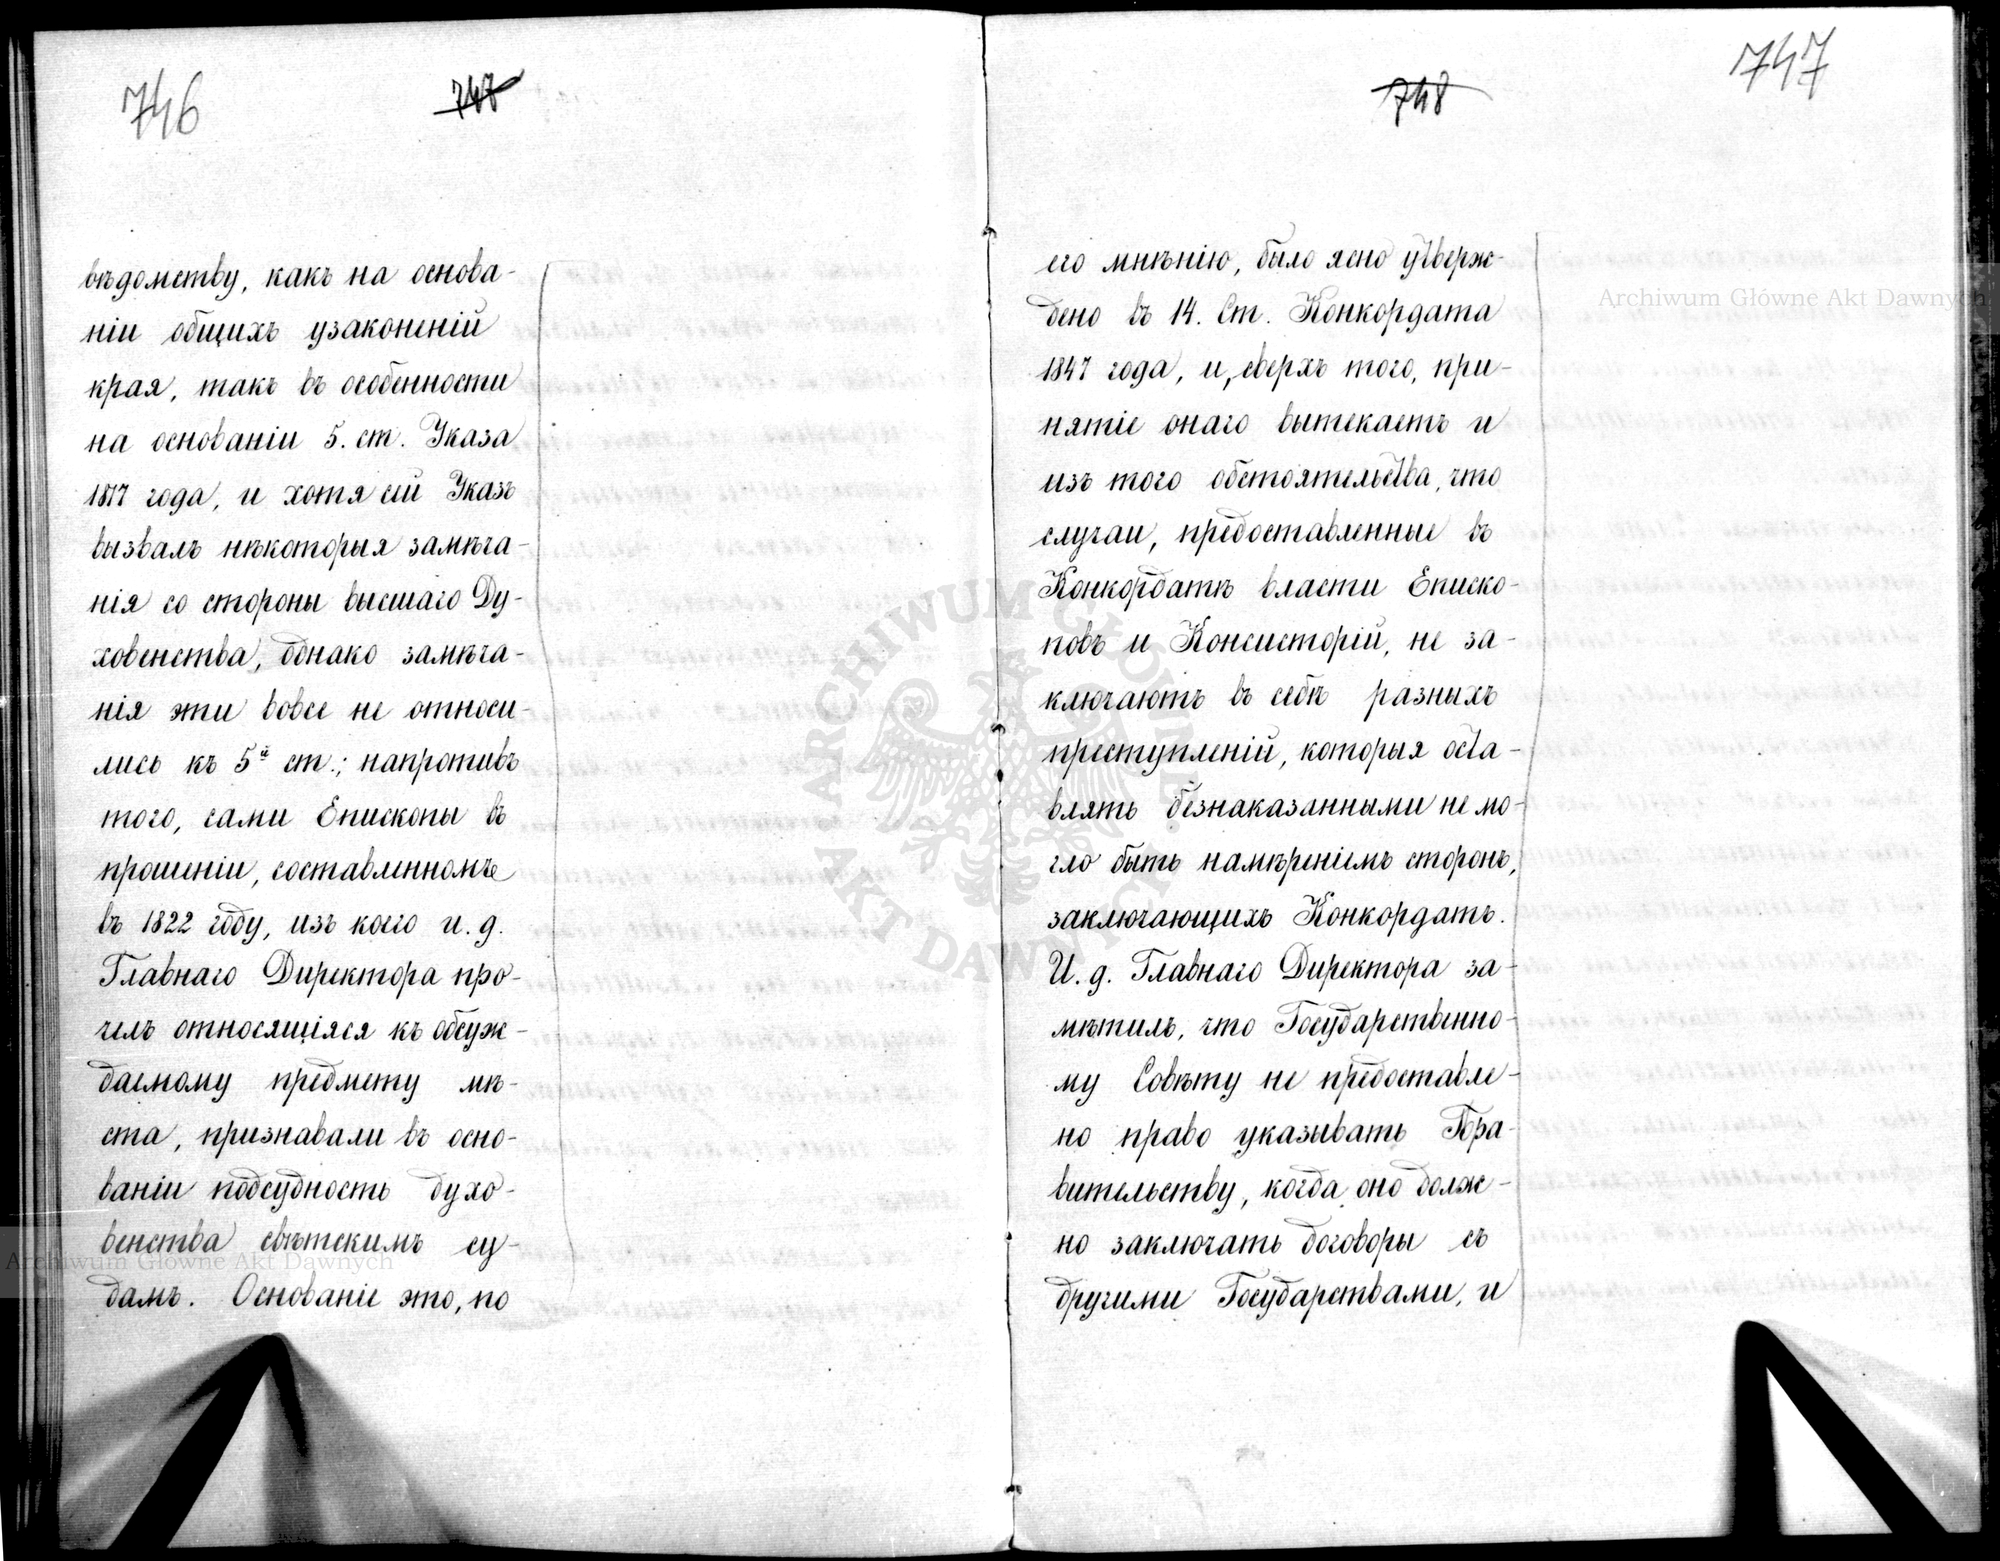 746
747
вѣдомству, какъ на основа-
ніи общихъ узаконеній
края, такъ въ особенности
на основаніи 5. ст. Указа
1817 года, и хотя сій Указъ
вызвалъ нѣкоторыя замѣча-
нія со стороны высшаго Ду-
ховенства, однако замѣча-
нія эти вовсе не относи-
лись къ 5й ст.; напротивъ
того, сами Епископы въ
прошеніи, составленномъ
въ 1822 году, изъ коего и. д.
Главнаго Директора про-
челъ относящіяся къ обсуж-
даемому предмету мѣ-
ста, признавали въ осно-
ваніи подсудность духо-
венства свѣтскимъ су-
дамъ. Основаніе это, по
747
748
его мнѣнію, было ясно утверж-
дено въ 14. Ст. Конкордата
1847 года, и, сверхъ того, при-
нятіе онаго вытекаетъ и
изъ того обстоятельства, что
случаи, предоставленные въ
Конкордатѣ власти Еписко-
повъ и Консисторій, не за-
ключаютъ въ себѣ разныхъ
преступленій, которыя оста-
влять безнаказанными не мо-
гло быть намѣреніемъ сторонъ,
заключающихъ Конкордатъ.
И. д. Главнаго Директора за-
мѣтилъ, что Государственно-
му Совѣту не предоставле-
но право указывать Пра-
вительству, когда оно долж-
но заключать договоры съ
другими Государствами, и
Archiwum Główne Akt Dawnych
Archiwum Główne Akt Dawnych
ARCHIWUM GŁÓWNE AKT DAWNYCH